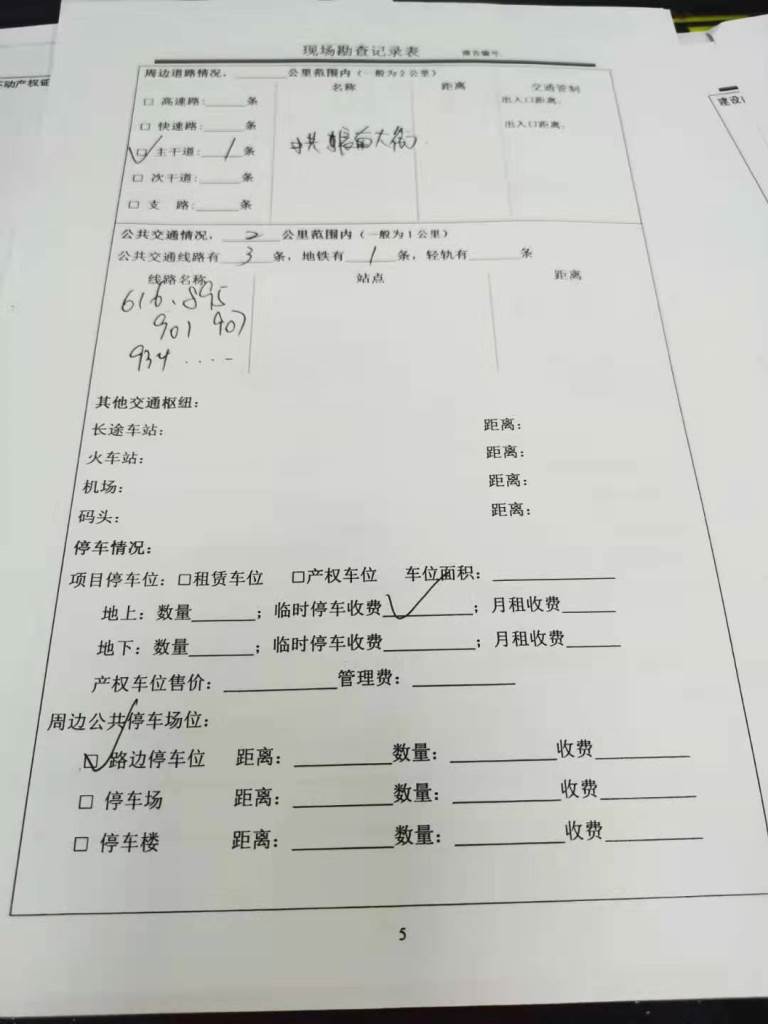 现场勘查记录表 报告编号
不动产权证
建设
周边道路情况，______公里范围内（一般为2公里）
名称 距离 交通管制
□ 高速路：____条 出入口距离：
□ 快速路：____条 出入口距离：
☑ 主干道：1条 南大街
□ 次干道：____条
□ 支 路：____条
公共交通情况，2公里范围内（一般为1公里）
公共交通线路有3条，地铁有1条，轻轨有____条
线路名称 站点 距离
616、895
901 907
934 .....
其他交通枢纽：
长途车站： 距离：
火车站： 距离：
机场： 距离：
码头： 距离：
停车情况：
项目停车位：□租赁车位 □产权车位 车位面积：________
地上：数量____；临时停车收费__✓__；月租收费____
地下：数量____；临时停车收费______；月租收费____
产权车位售价：________管理费：________
周边公共停车场位：
☑ 路边停车位 距离：________数量：________收费________
□ 停车场 距离：________数量：________收费________
□ 停车楼 距离：________数量：________收费________
5